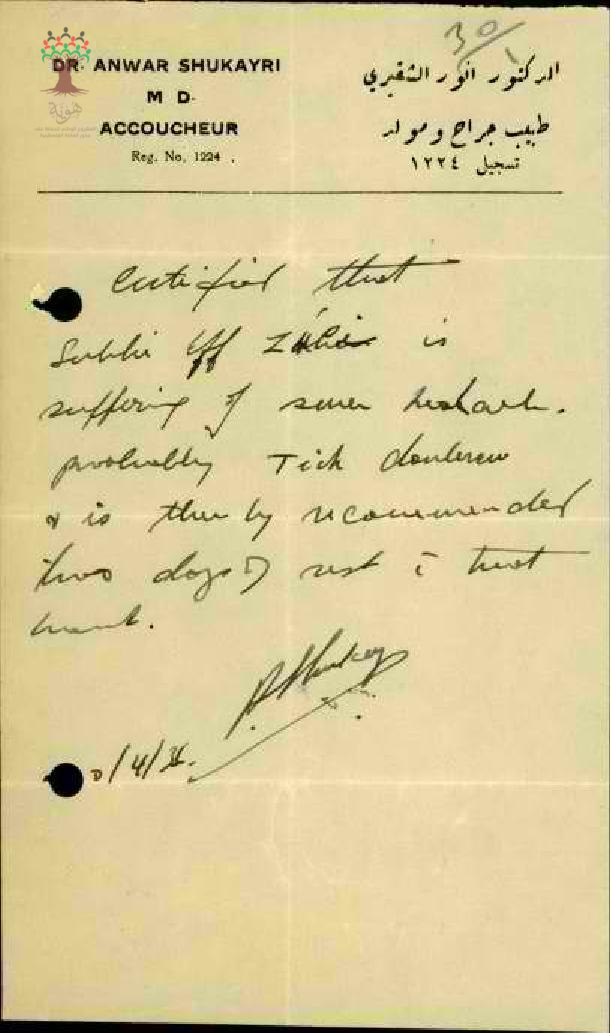 30/1
DR. ANWAR SHUKAYRI
M D.
ACCOUCHEUR
Reg. No, 1224 .
الدكتور انور الشقيري
طبيب جراح ومولد
تسجيل ١٢٢٤
هوية
Certified that
Subhi Eff is
suffering of sever headach.
probably Tick
& is there by recommended
two days of rest c̄ treat
ment.
A Shukayri
/4/36.